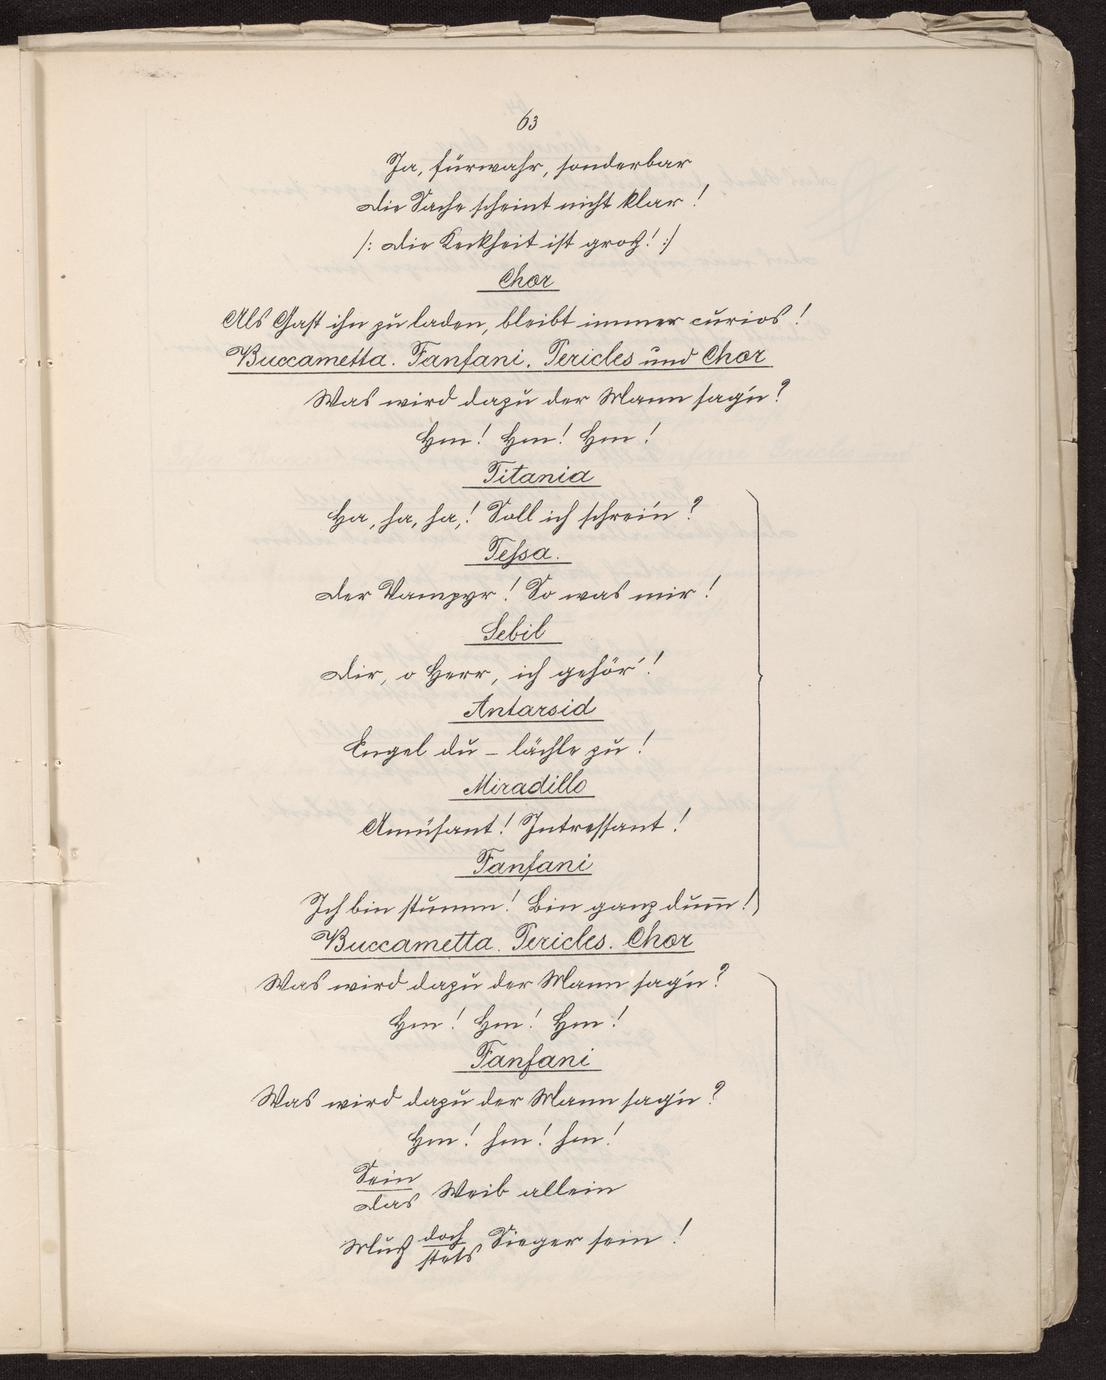 63
Ja, fürwahr, sonderbar
die Sache scheint nicht klar!
/: die Keckheit ist groß! :/
Chor
Als Gast ihn zu laden, bleibt immer curios!
Buccametta. Fanfani. Pericles und Chor
Was wird dazu der Mann sag'n?
Hm! Hm! Hm!
Titania
Ha, ha, ha,! Soll ich schrei'n?
Tessa.
Der Vampyr! So was mir!
Sebil
Dir, o Herr, ich gehör'!
Antarsid
Engel du – lächle zu!
Miradillo
Amüsant! Intressant!
Fanfani
Ich bin stumm! Bin ganz dum̅!
Buccametta. Pericles. Chor
Was wird dazu der Mann sag'n?
Hm! Hm! Hm!
Fanfani
Was wird dazu der Mann sag'n?
Hm! hm! hm!
Sein
das Weib allein
Muß doch Sieger sein!
stets